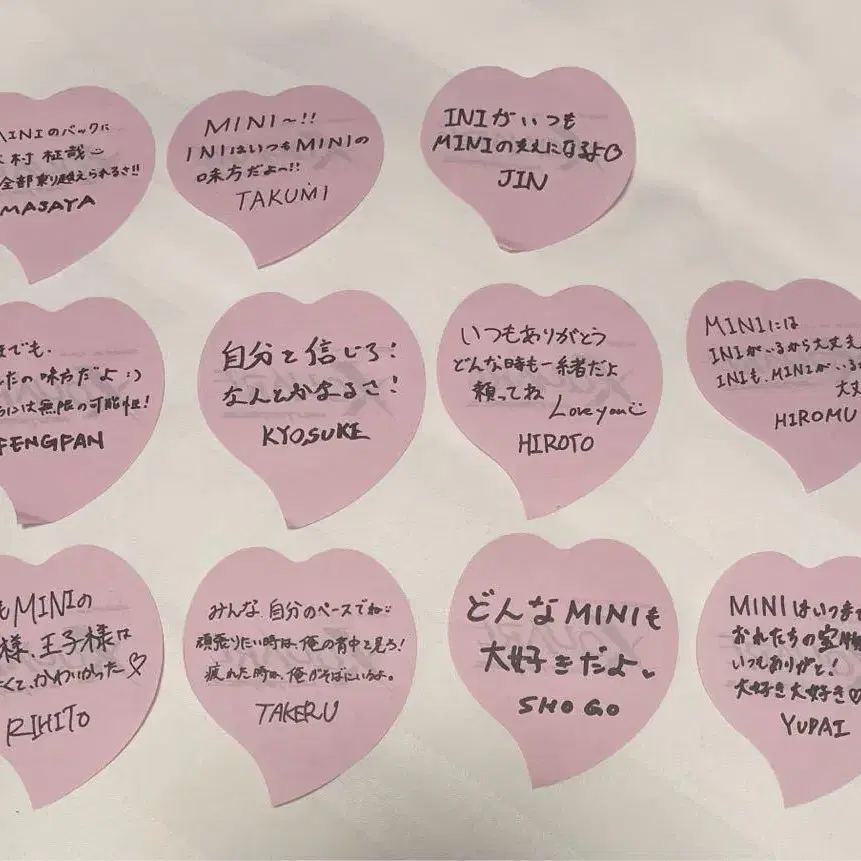 MINIのバックに
村 柾哉
全部乗り越えられるさ!!
MASAYA
MINI〜!!
INIはいつもMINIの
味方だよ〜!!
TAKUMI
INIがいつも
MINIの支えになるよ
JIN
でも、
たの味方だよ:)
には無限の可能性!
FENGFAN
自分を信じろ!
なんとかなるさ!
KYOSUKE
いつもありがとう
どんな時も一緒だよ
頼ってね Love you
HIROTO
MINIには
INIがいるから大丈夫
INIも、MINIがいる
大丈
HIROMU
MINIの
様、王子様は
くて、かわいかった♡
RIHITO
みんな、自分のペースでね
頑張りたい時は、俺の背中を見ろ!
疲れた時は、俺がそばにいるよ。
TAKERU
どんなMINIも
大好きだよ
SHOGO
MINIはいつま
おれたちの宝
いつもありがと!
大好き大好き♡
YUDAI